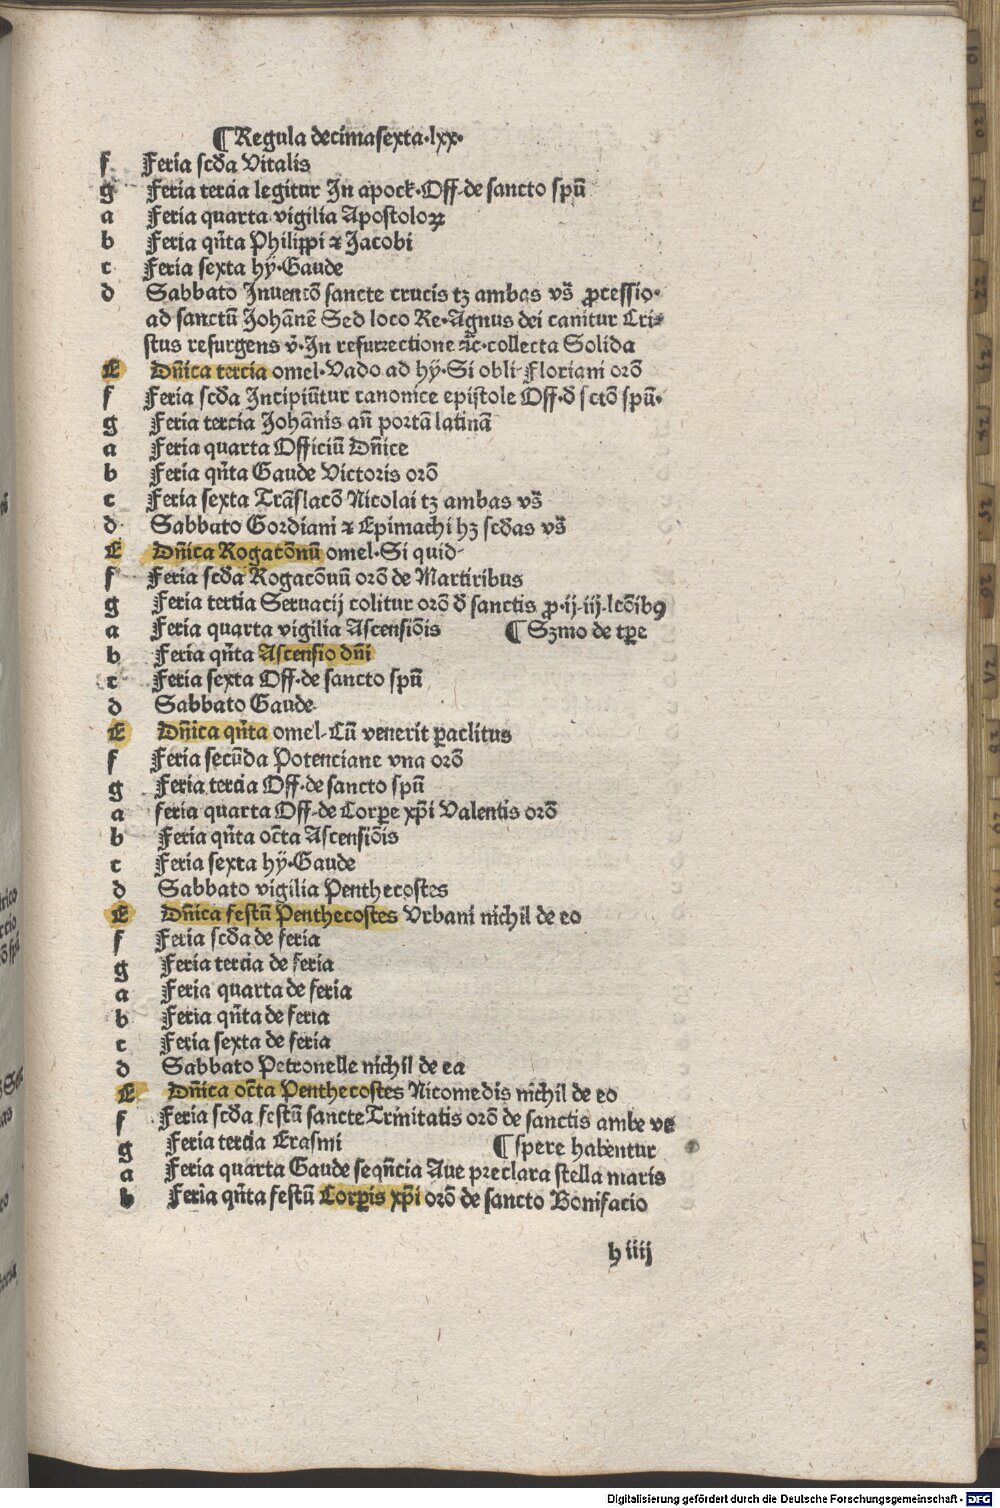 ¶Regula decimasexta·lxx·
f Feria scďa Vitalis
g Feria tercia legitur In apock·Off·de sancto spū
a Feria quarta vigilia Apostoloꝝ
b Feria qñta Philippi ⁊ Jacobi
c Feria sexta hÿ·Gaude
d Sabbato Inuencō sancte crucis tꝫ ambas vs̄ ꝓcessio·
ad sanctū Johānē Sed loco Re·Agnus dei canitur Cri⸗
stus resurgens v̄·In resurrectione ⁊c̄·collecta Solida
E Dñica tercia omel·Vado ad hÿ·Si obli·Floriani orō
f Feria scďa Incipiūtur canonice epistole Off·ď sctō spū·
g Feria tercia Johānis añ portā latinā
a Feria quarta Officiū Dñice
b Feria qñta Gaude Victoris orō
c Feria sexta Trāslacō Nicolai tꝫ ambas vs̄
d Sabbato Gordiani ⁊ Epimachi hꝫ scďas vs̄
E Dñica Rogacōnū omel·Si quid·
f Feria scďa Rogacōnū orō de Martiribus
g Feria tertia Seruacij colitur orō ď sanctis ꝓ·ij·iij·lcōibꝰ
a Feria quarta vigilia Ascensiōis ¶Sꝫmo de tꝑe
b Feria qñta Ascensio dñi
c Feria sexta Off·de sancto spū
d Sabbato Gaude·
E Dñica qñta omel·Cū venerit ꝑaclitus
f Feria secūda Potenciane vna orō
g Feria tercia Off·de sancto spū
a feria quarta Off·de Corꝑe xp̄i Valentis orō
b Feria qñta oc̄ta Ascensiōis
c Feria sexta hÿ·Gaude
d Sabbato vigilia Penthecostes
E Dñica festū Penthecostes Vrbani nichil de eo
f Feria scďa de feria
g Feria tercia de feria
a Feria quarta de feria
b Feria qñta de feria
c Feria sexta de feria
d Sabbato Petronelle nichil de ea
E Dñica oc̄ta Penthecostes Nicomedis nichil de eo
f Feria scďa festū sancte Trinitatis orō de sanctis ambe ve
g Feria tertia Erasmi ¶spere habentur
a Feria quarta Gaude seqñcia Aue preclara stella maris
b Feria qñta festū Corꝑis xp̄i orō de sancto Bonifacio
h iiij
Digitalisierung gefördert durch die Deutsche Forschungsgemeinschaft - DFG